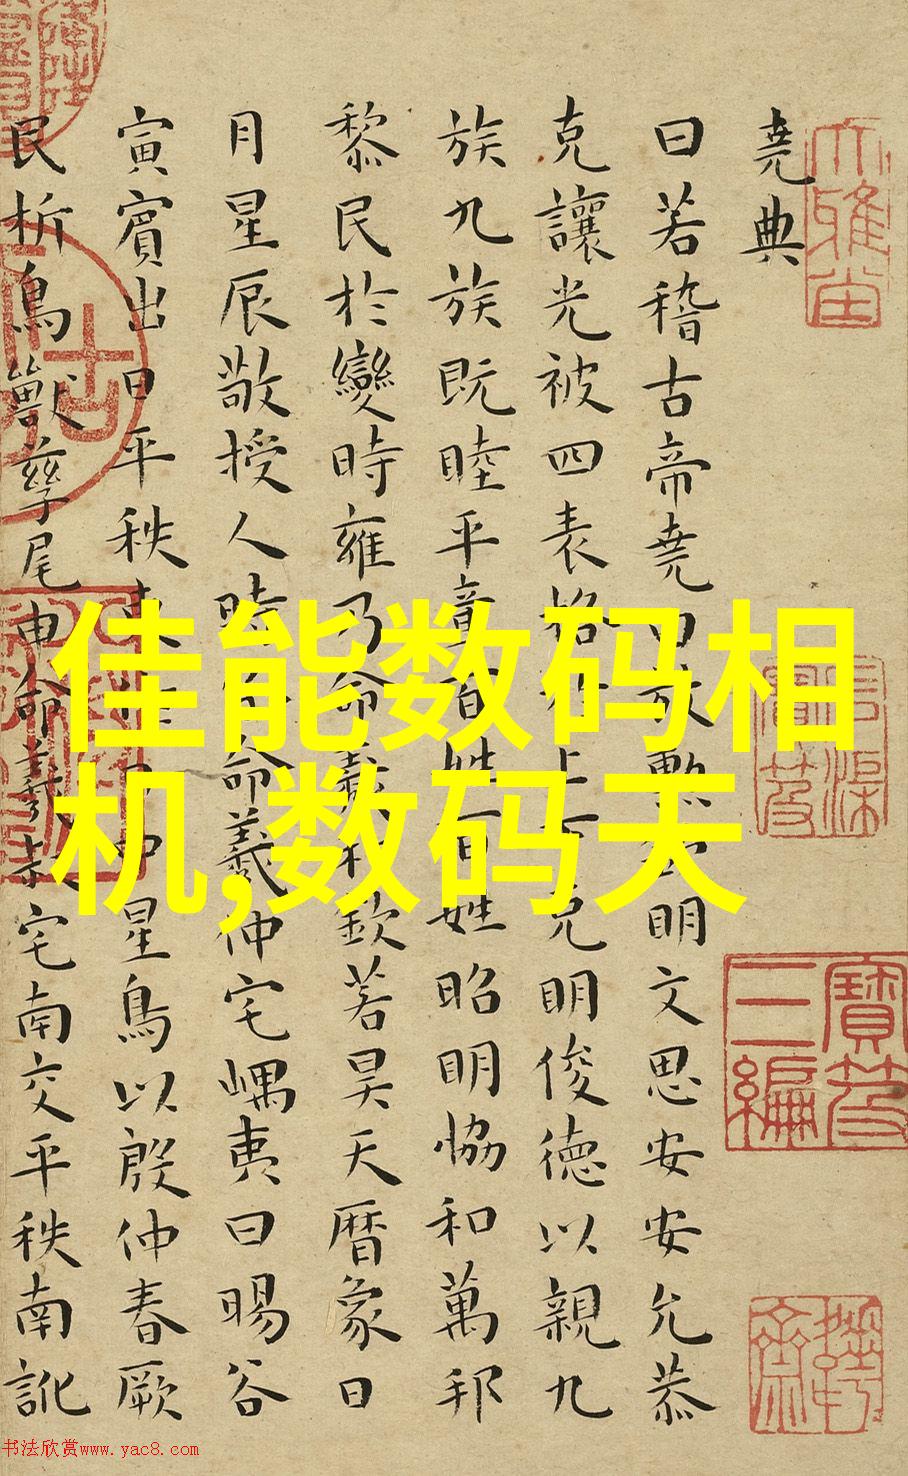 堯典
曰若稽古帝堯曰放勲欽明文思安安允恭
克讓光被四表格于上下克明俊德以親九
族九族既睦平章百姓百姓昭明協和萬邦
黎民於變時雍乃命羲和欽若昊天曆象日
月星辰敬授人時分命羲仲宅嵎夷曰暘谷
寅賓出日平秩東作日中星鳥以殷仲春厥
民析鳥獸孳尾申命羲叔宅南交平秩南訛
佳能数码相
机,数码天
大雅堂
寶笈三編
书法欣赏www.yac8.com